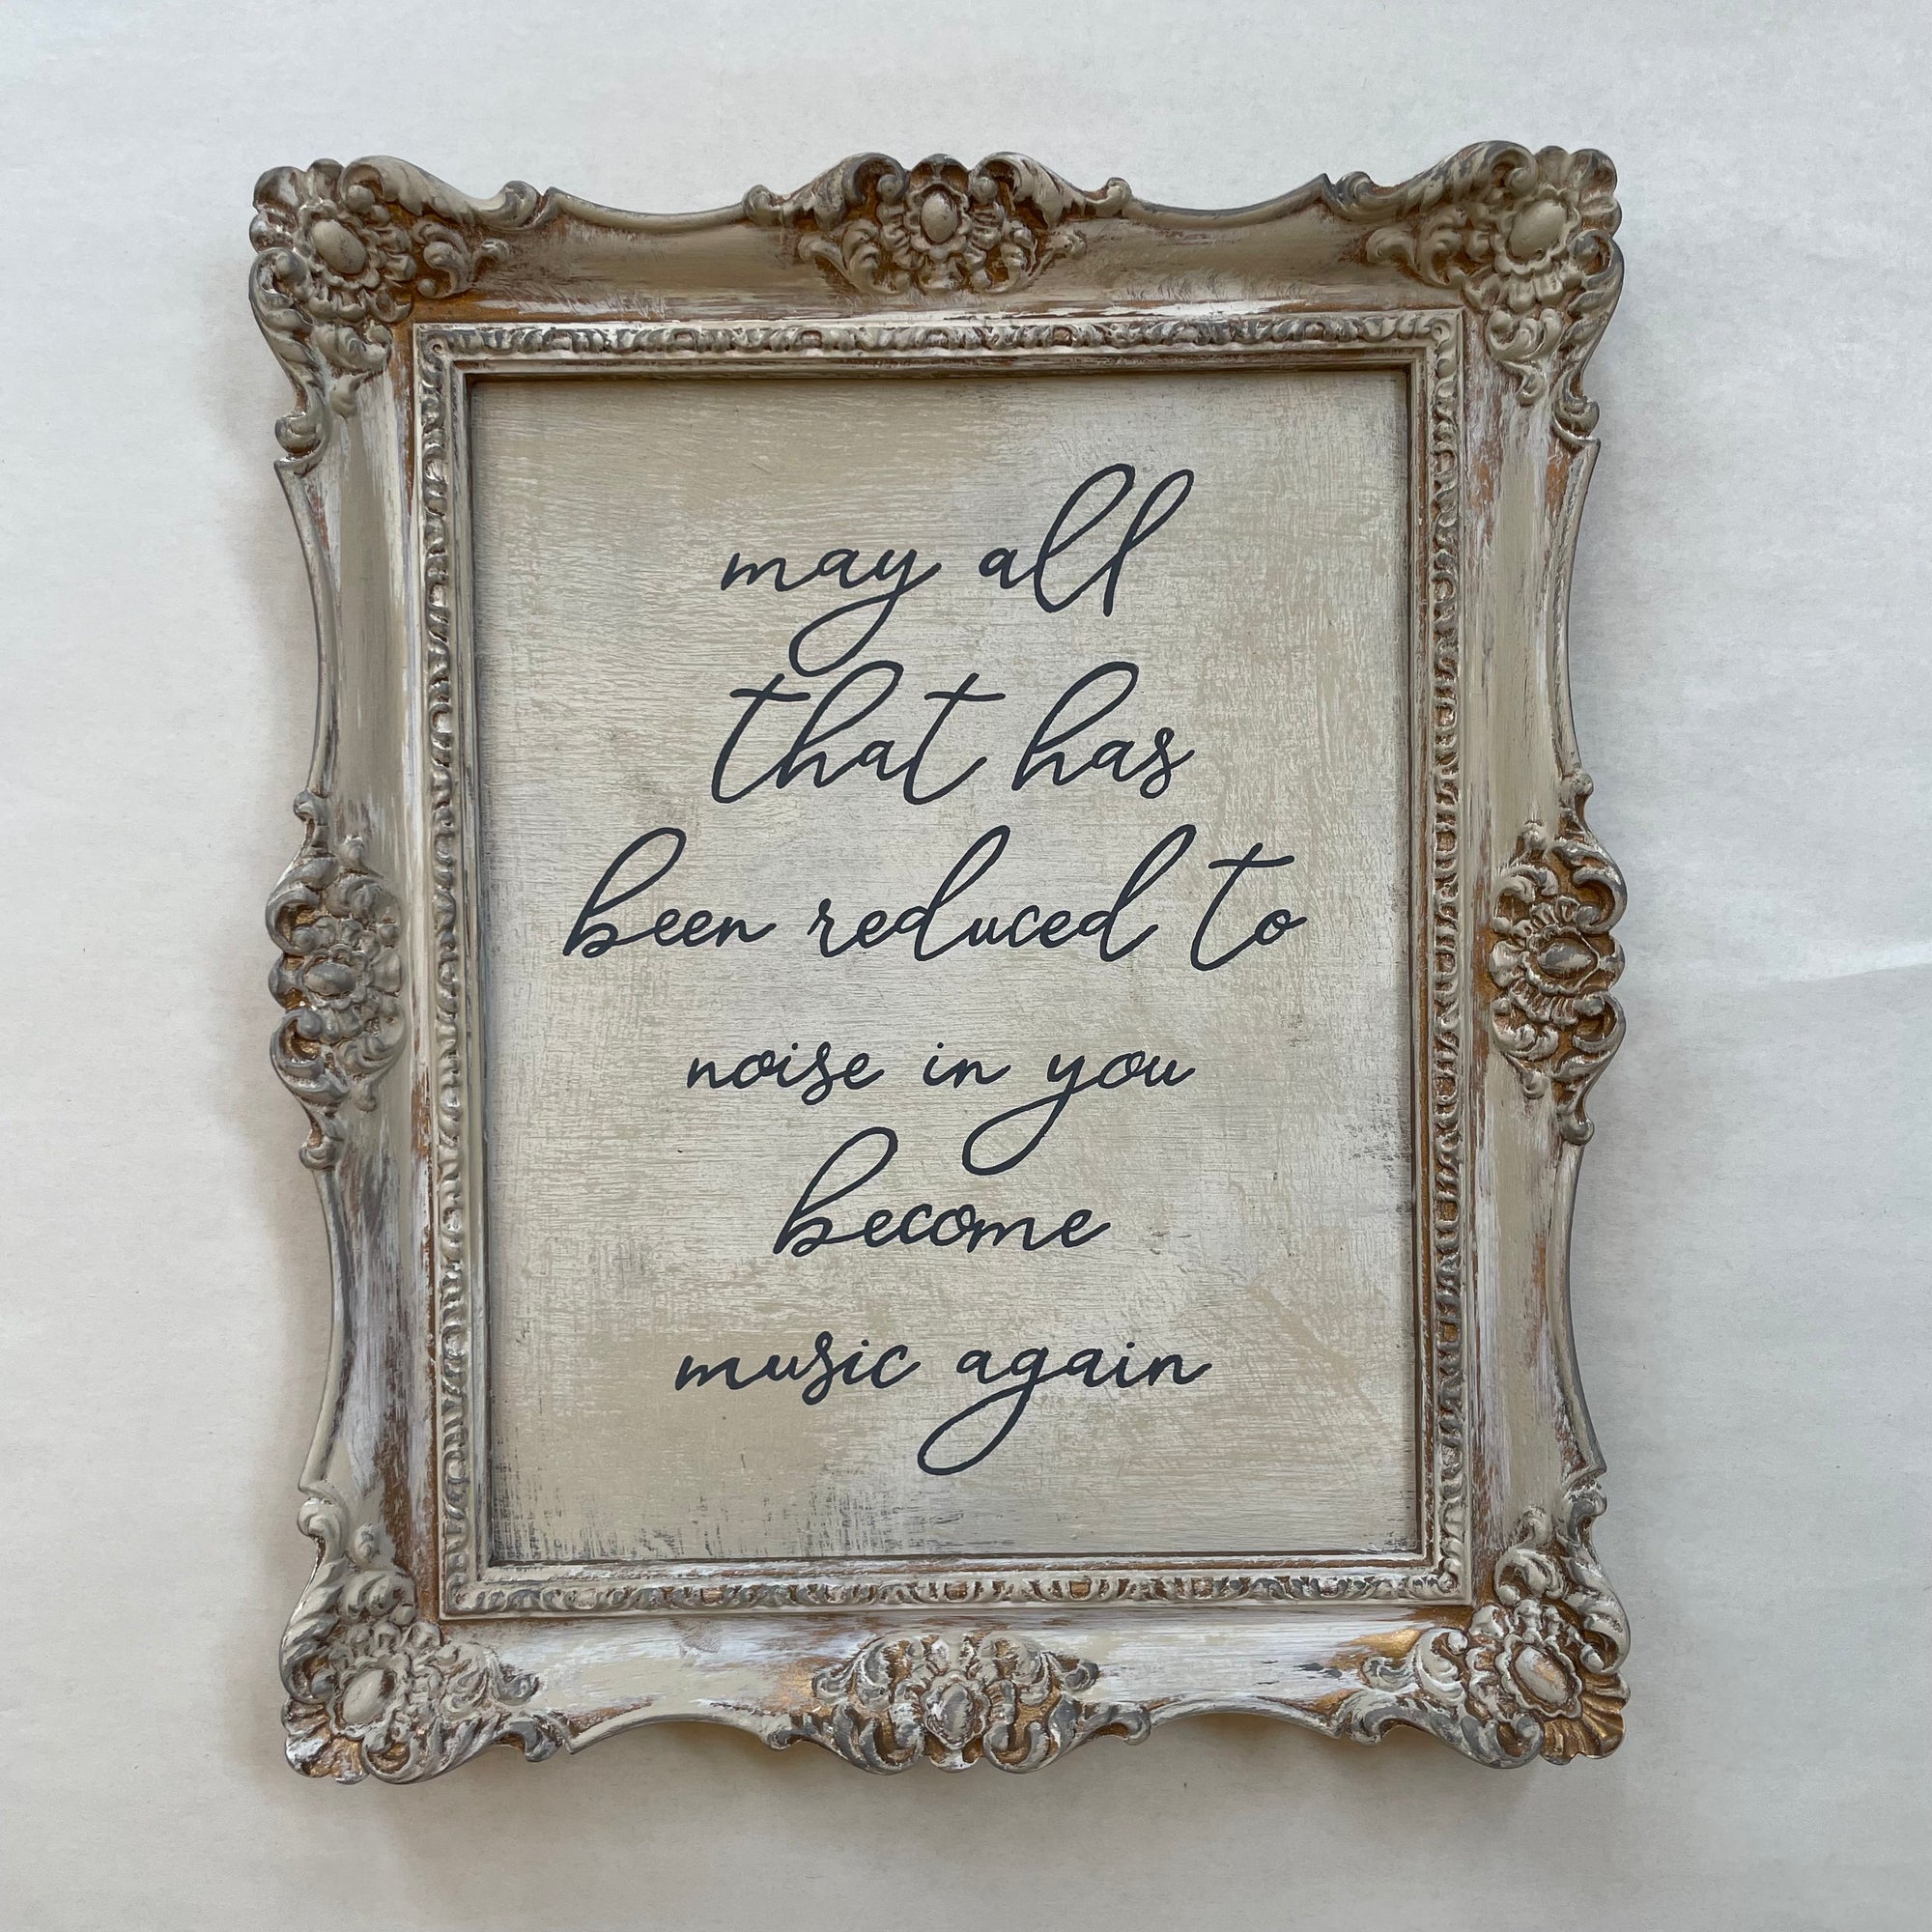 may all
that has
been reduced to
noise in you
become
music again